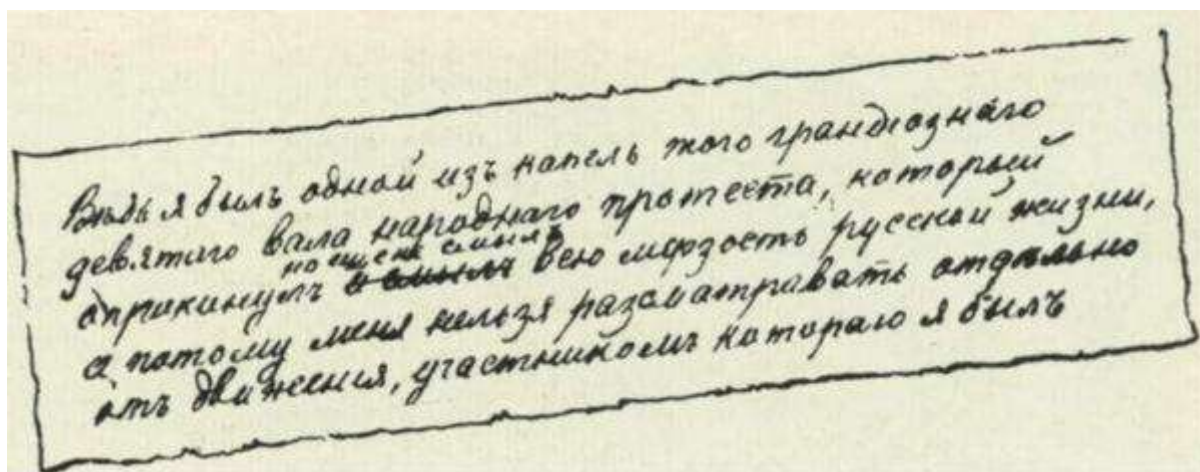 Вѣдь я былъ одной изъ капель того грандіознаго
девятаго вала народнаго протеста, который
но еще не смылъ
опрокинулъ всю мерзость русской жизни,
а потому меня нельзя разсматривать отдѣльно
отъ движенія, участникомъ котораго я былъ